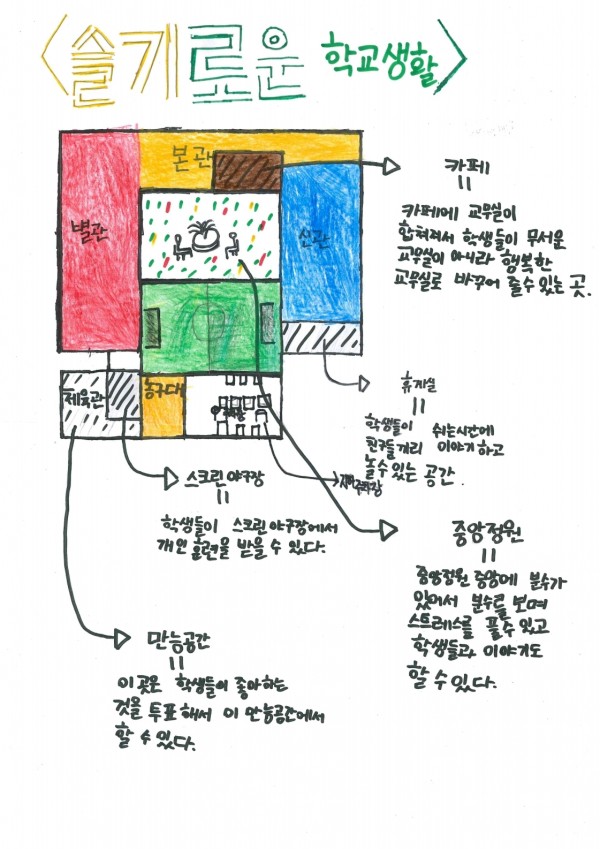 <슬기로운 학교생활>
본관
별관
신관
체육관
농구대
카페
=
카페에 교무실이
합쳐져서 학생들이 무서운
교무실이 아니라 행복한
교무실로 바꾸어 줄 수 있는 곳.
휴게실
=
학생들이 쉬는시간에
친구들끼리 이야기하고
놀 수 있는 공간.
스크린 야구장
=
학생들이 스크린 야구장에서
개인 훈련을 받을 수 있다.
중앙정원
=
중앙정원 중앙에 분수가
있어서 분수를 보며
스트레스를 풀 수 있고
학생들과 이야기도
할 수 있다.
만능공간
=
이 곳은 학생들이 좋아하는
것을 투표해서 이 만능공간에서
할 수 있다.